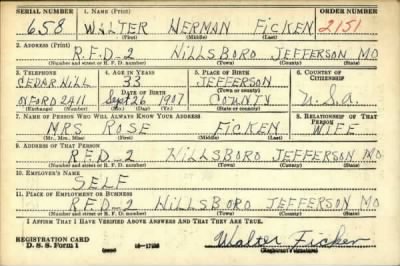 SERIAL NUMBER 1. NAME (Print) ORDER NUMBER
658 WALTER HERMAN FICKEN 2151
(First) (Middle) (Last)
2. ADDRESS (Print)
R.F.D-2 HILLSBORO JEFFERSON MO
(Number and street or R. F. D. number) (Town) (County) (State)
3. TELEPHONE 4. AGE IN YEARS 5. PLACE OF BIRTH 6. COUNTRY OF CITIZENSHIP
CEDAR HILL 33 JEFFERSON
DATE OF BIRTH (Town or county)
OXFORD 2411 Sept 26 1907 COUNTY U.S.a.
(Exchange) (Number) (Mo.) (Day) (Yr.) (State or country)
7. NAME OF PERSON WHO WILL ALWAYS KNOW YOUR ADDRESS 8. RELATIONSHIP OF THAT PERSON
MRS ROSE FICKEN WIFE
(Mr., Mrs., Miss) (First) (Middle) (Last)
9. ADDRESS OF THAT PERSON
R.F.D-2 HILLSBORO JEFFERSON MO
(Number and street or R. F. D. number) (Town) (County) (State)
10. EMPLOYER'S NAME
SELF
11. PLACE OF EMPLOYMENT OR BUSINESS
R.F.D-2 HILLSBORO JEFFERSON MO
(Number and street or R. F. D. number) (Town) (County) (State)
I AFFIRM THAT I HAVE VERIFIED ABOVE ANSWERS AND THAT THEY ARE TRUE.
REGISTRATION CARD
D. S. S. Form 1 Walter Ficken
(Registrant's signature)